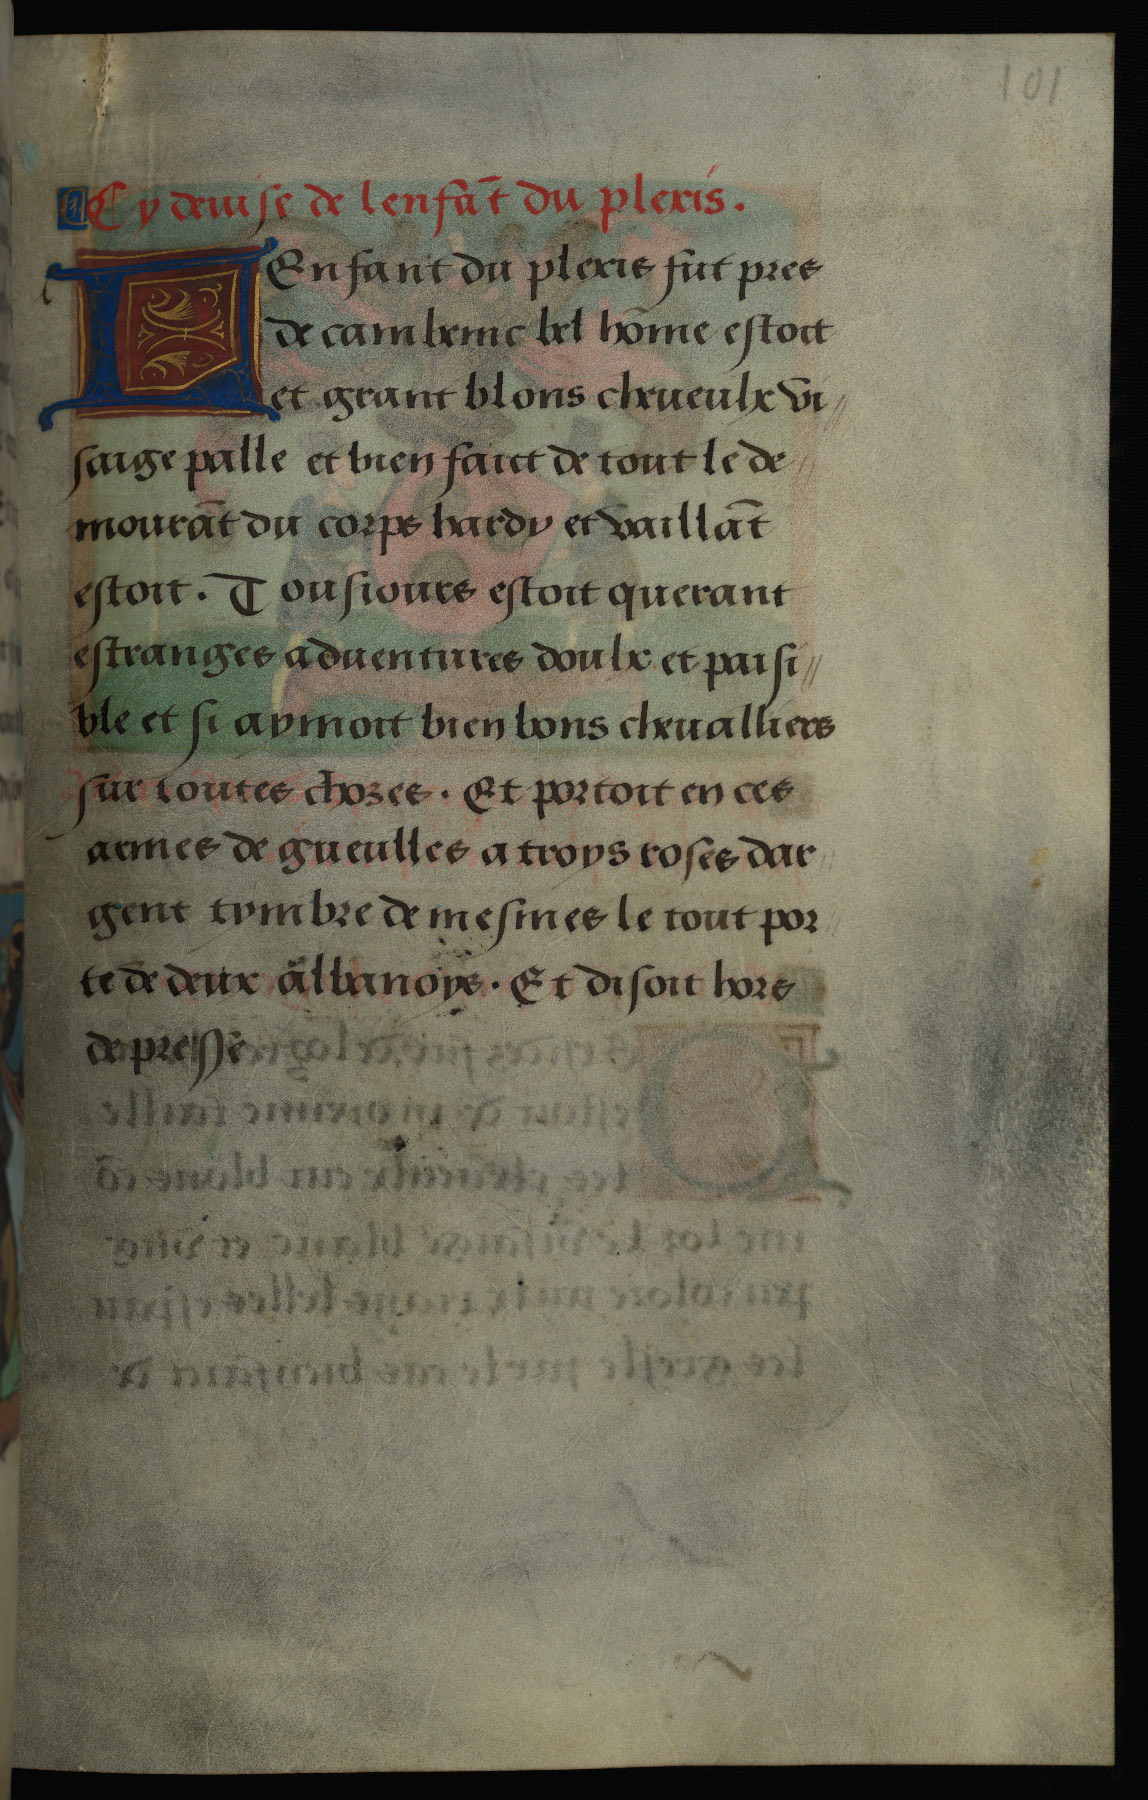 101
Cy deuise de lenfāt du plexis.
LEnfant du plexis fut pres
de cambenic bel hōme estoit
et grant blons cheueulx vi
saige palle et bien faict de tout le de
mourāt du corps hardy et vaillāt
estoit. Tousiours estoit querant
estranges aduentures doulx et paisi
ble et si aymoit bien bons cheualliers
sur toutes chozes. Et portoit en ces
armes de gueulles a troys roses dar
gent tymbre de mesmes le tout por
te de deux albanoys. Et disoit hors
de presse